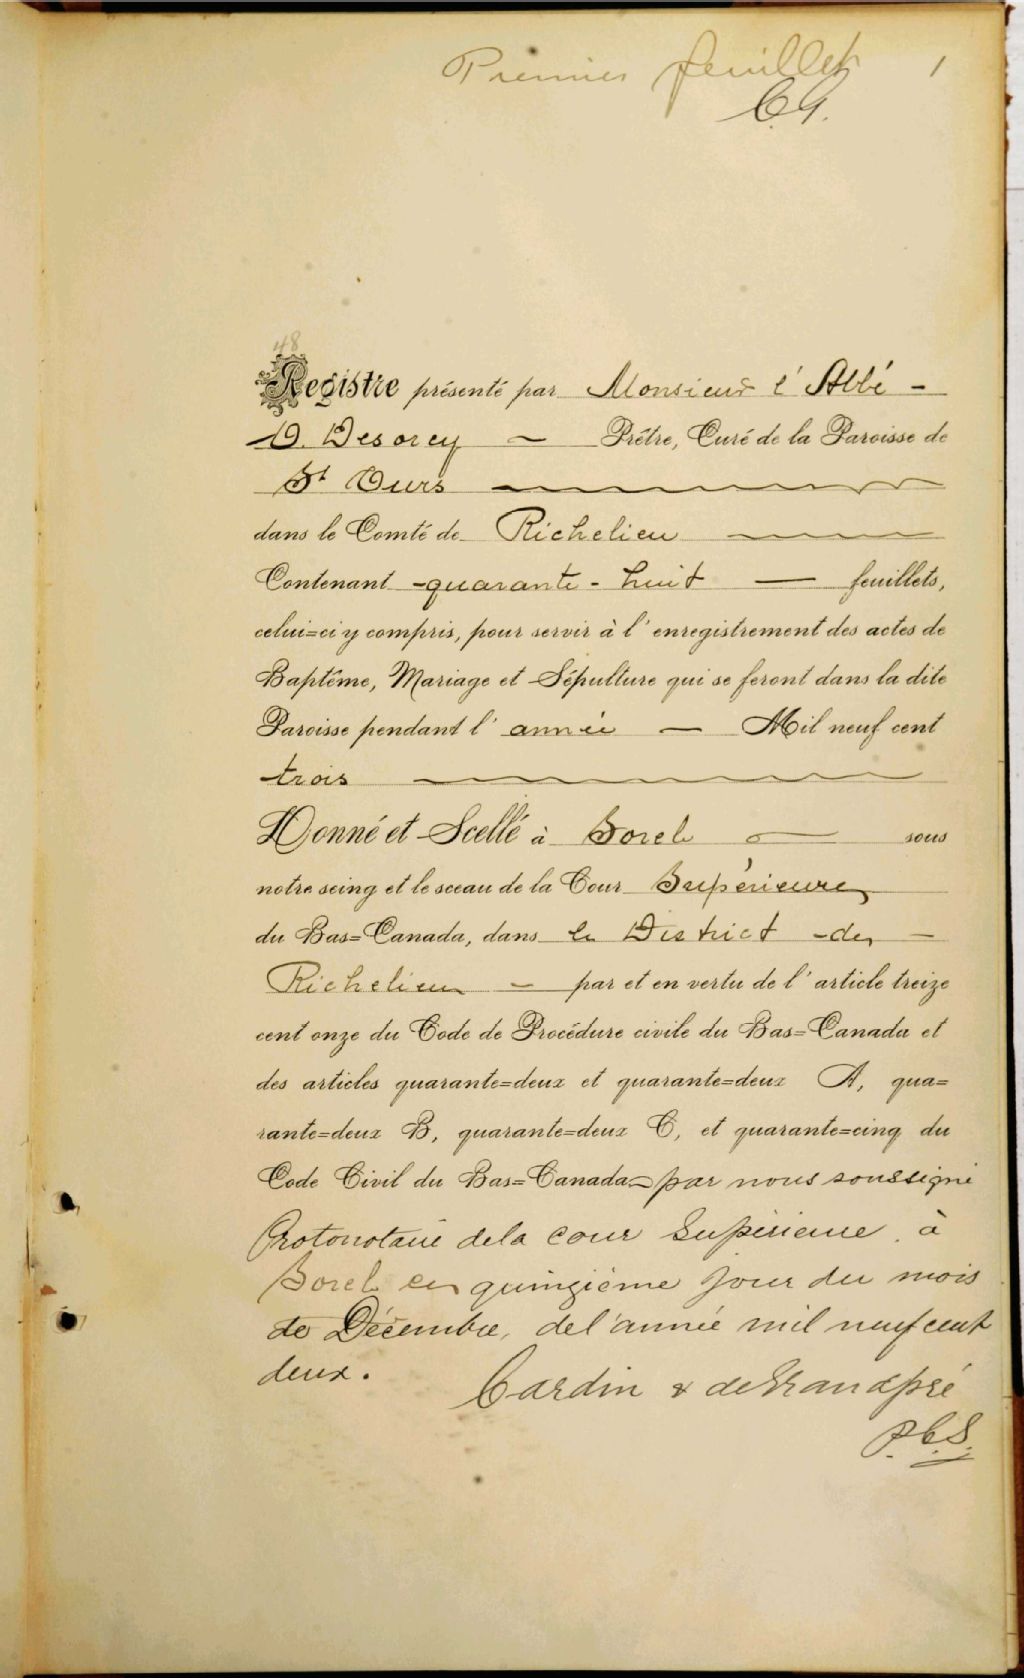 Premier feuillet 1
C. G.
48
Registre présenté par Monsieur l'Abbé -
D. Desorcy - Prêtre, Curé de la Paroisse de
St Ours
dans le Comté de Richelieu
Contenant -quarante-huit — feuillets,
celui=ci y compris, pour servir à l'enregistrement des actes de
Baptême, Mariage et Sépulture qui se feront dans la dite
Paroisse pendant l'année — Mil neuf cent
trois
Donné et Scellé à Sorel — sous
notre seing et le sceau de la Cour Supérieure
du Bas=Canada, dans le District -de -
Richelieu - par et en vertu de l'article treize
cent onze du Code de Procédure civile du Bas=Canada et
des articles quarante=deux et quarante=deux A, qua=
rante=deux B, quarante=deux C, et quarante=cinq du
Code Civil du Bas=Canada=par nous soussigné
Protonotaire de la cour Supérieure à
Sorel ce quinzième jour du mois
de Décembre, de l'année mil neuf cent
deux.
Cardin & deGrandpré
P.C.S.